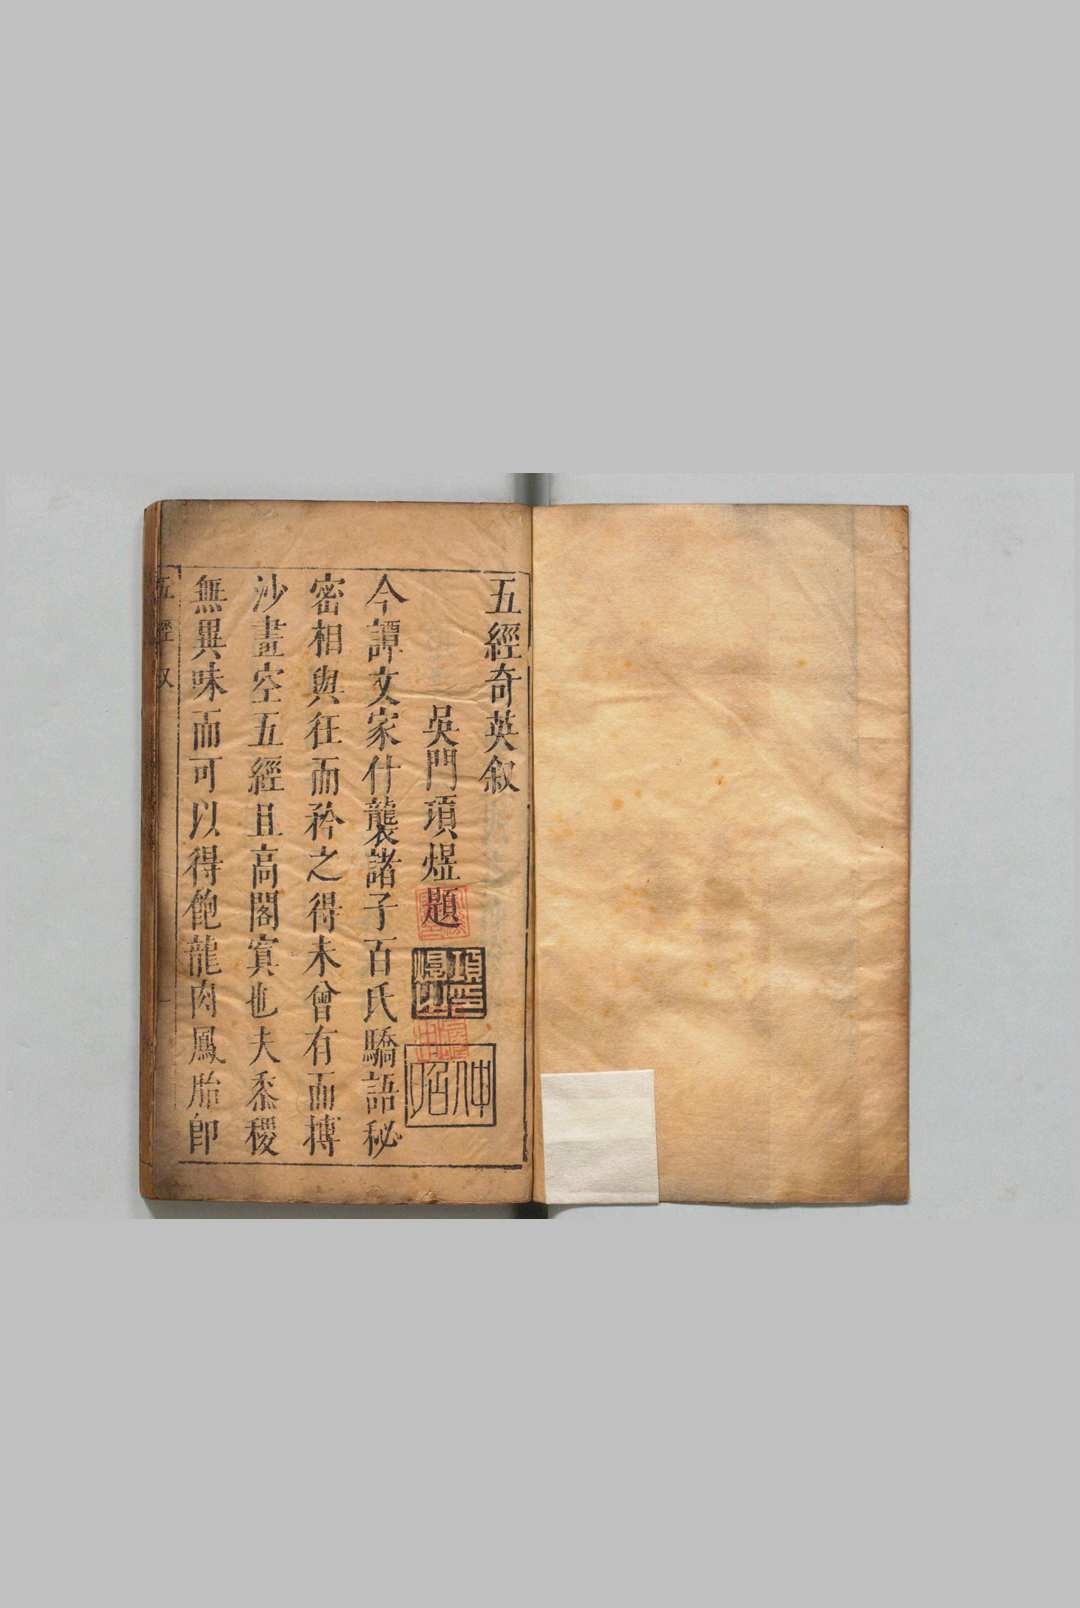 五經奇英叙
吳門項煜題
項煜之印
仲昭
今譚文家什襲諸子百氏驕語秘
密相與狂而矜之得未曾有而摶
沙畫空五經且高閣寘也夫黍稷
無異味而可以得飽龍肉鳳胎卽
五經叙
一